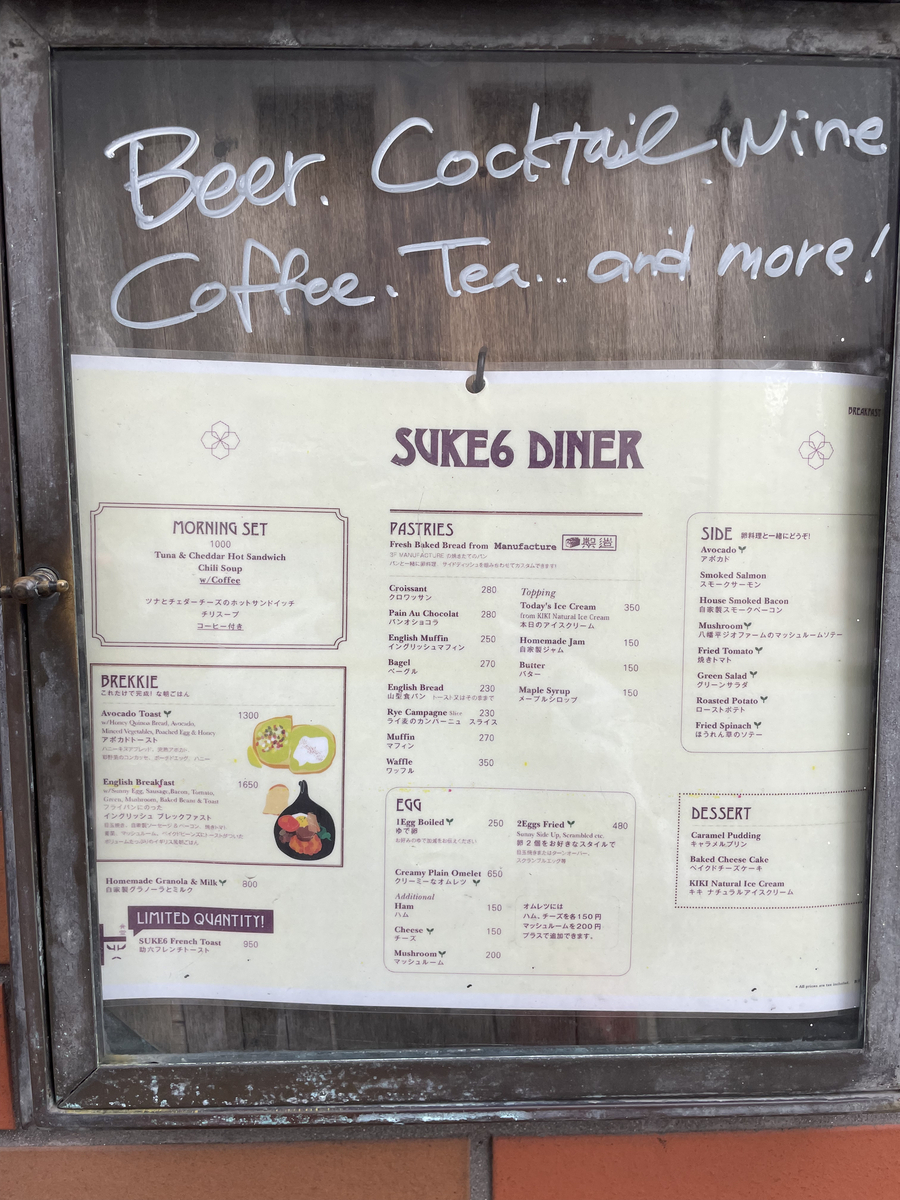 Beer. Cocktail. Wine
Coffee. Tea... and more!
BREAKFAST
SUKE6 DINER
MORNING SET
1000
Tuna & Cheddar Hot Sandwich
Chili Soup
w/Coffee
ツナとチェダーチーズのホットサンドイッチ
チリスープ
コーヒー付き
BREKKIE
これだけで完成!な朝ごはん
Avocado Toast 1300
w/Honey Quinoa Bread, Avocado,
Minced Vegetables, Poached Egg & Honey
アボカドトースト
English Breakfast 1650
w/Sunny Egg, Sausage, Bacon, Tomato,
Green, Mushroom, Baked Beans & Toast
フライパンにのった
イングリッシュ ブレックファスト
Homemade Granola & Milk 800
自家製グラノーラとミルク
LIMITED QUANTITY!
SUKE6 French Toast 950
助六フレンチトースト
PASTRIES
Fresh Baked Bread from Manufacture 製造
3F MANUFACTURE の焼きたてのパン
パンと一緒に卵料理、サイドディッシュを組み合わせてカスタムできます!
Croissant 280
クロワッサン
Pain Au Chocolat 280
パンオショコラ
English Muffin 250
イングリッシュマフィン
Bagel 270
ベーグル
English Bread 230
山型食パン トースト又はそのままで
Rye Campagne Slice 230
ライ麦のカンパーニュ スライス
Muffin 270
マフィン
Waffle 350
ワッフル
Topping
Today's Ice Cream 350
from KIKI Natural Ice Cream
本日のアイスクリーム
Homemade Jam 150
自家製ジャム
Butter 150
バター
Maple Syrup 150
メープルシロップ
EGG
1Egg Boiled 250
ゆで卵
お好みのゆで加減をお伝えください
Creamy Plain Omelet 650
クリーミーなオムレツ
Additional
Ham 150
ハム
Cheese 150
チーズ
Mushroom 200
マッシュルーム
2Eggs Fried 480
Sunny Side Up, Scrambled etc.
卵2個をお好きなスタイルで
目玉焼きまたはターンオーバー、
スクランブルエッグ等
オムレツには
ハム、チーズを各150円
マッシュルームを200円
プラスで追加できます。
SIDE 卵料理と一緒にどうぞ!
Avocado
アボカド
Smoked Salmon
スモークサーモン
House Smoked Bacon
自家製スモークベーコン
Mushroom
八幡平ジオファームのマッシュルームソテー
Fried Tomato
焼きトマト
Green Salad
グリーンサラダ
Roasted Potato
ローストポテト
Fried Spinach
ほうれん草のソテー
DESSERT
Caramel Pudding
キャラメルプリン
Baked Cheese Cake
ベイクドチーズケーキ
KIKI Natural Ice Cream
キキ ナチュラルアイスクリーム
* All prices are tax included.